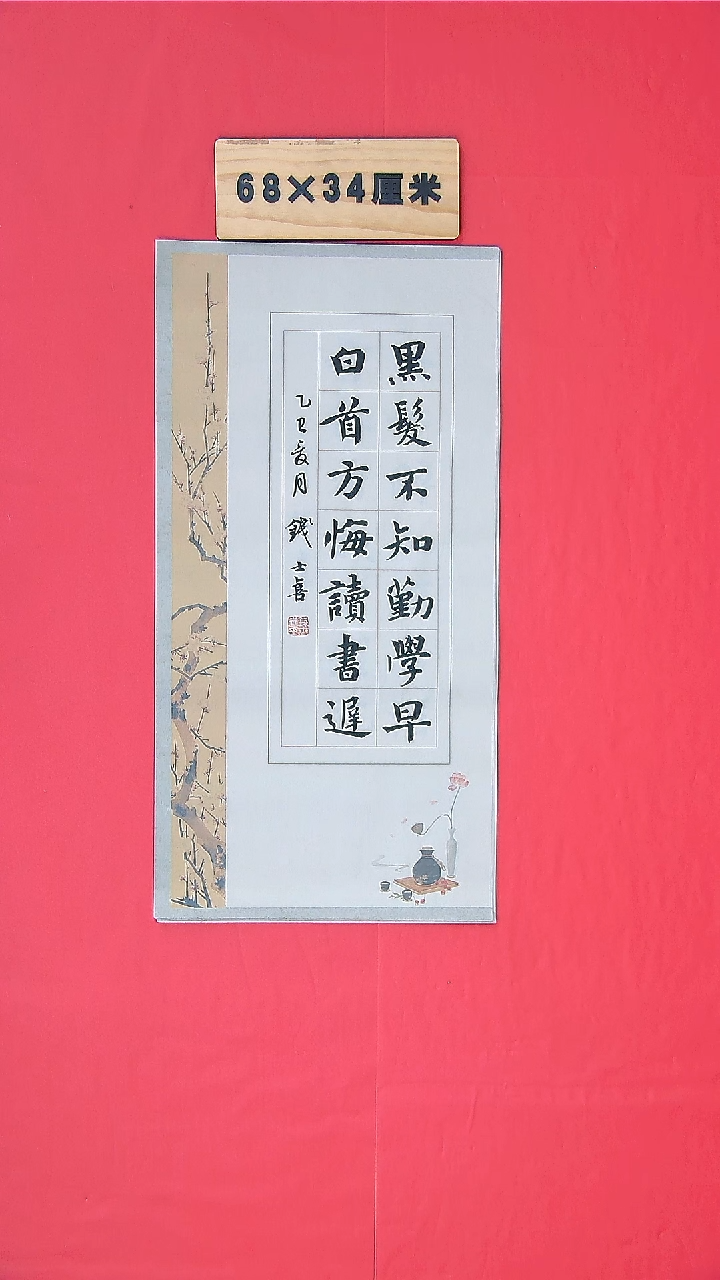 68×34厘米
黑髮不知勤學早
白首方悔讀書遲
乙巳夏月 錢士喜